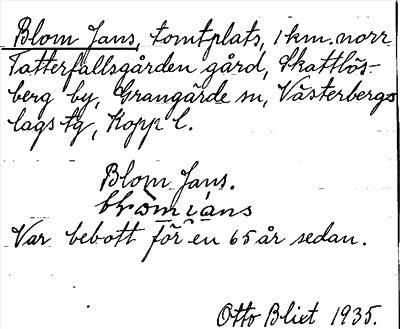 Blom Jans, tomtplats, 1 km. norr
Tatterfallsgården gård, Skattlös-
berg by, Grangärde sn, Västerbergs
lags tg, Kopp l.
Blom Jans.
blòm jáns
Var bebott för en 65 år sedan.
Otto Bliet 1935.